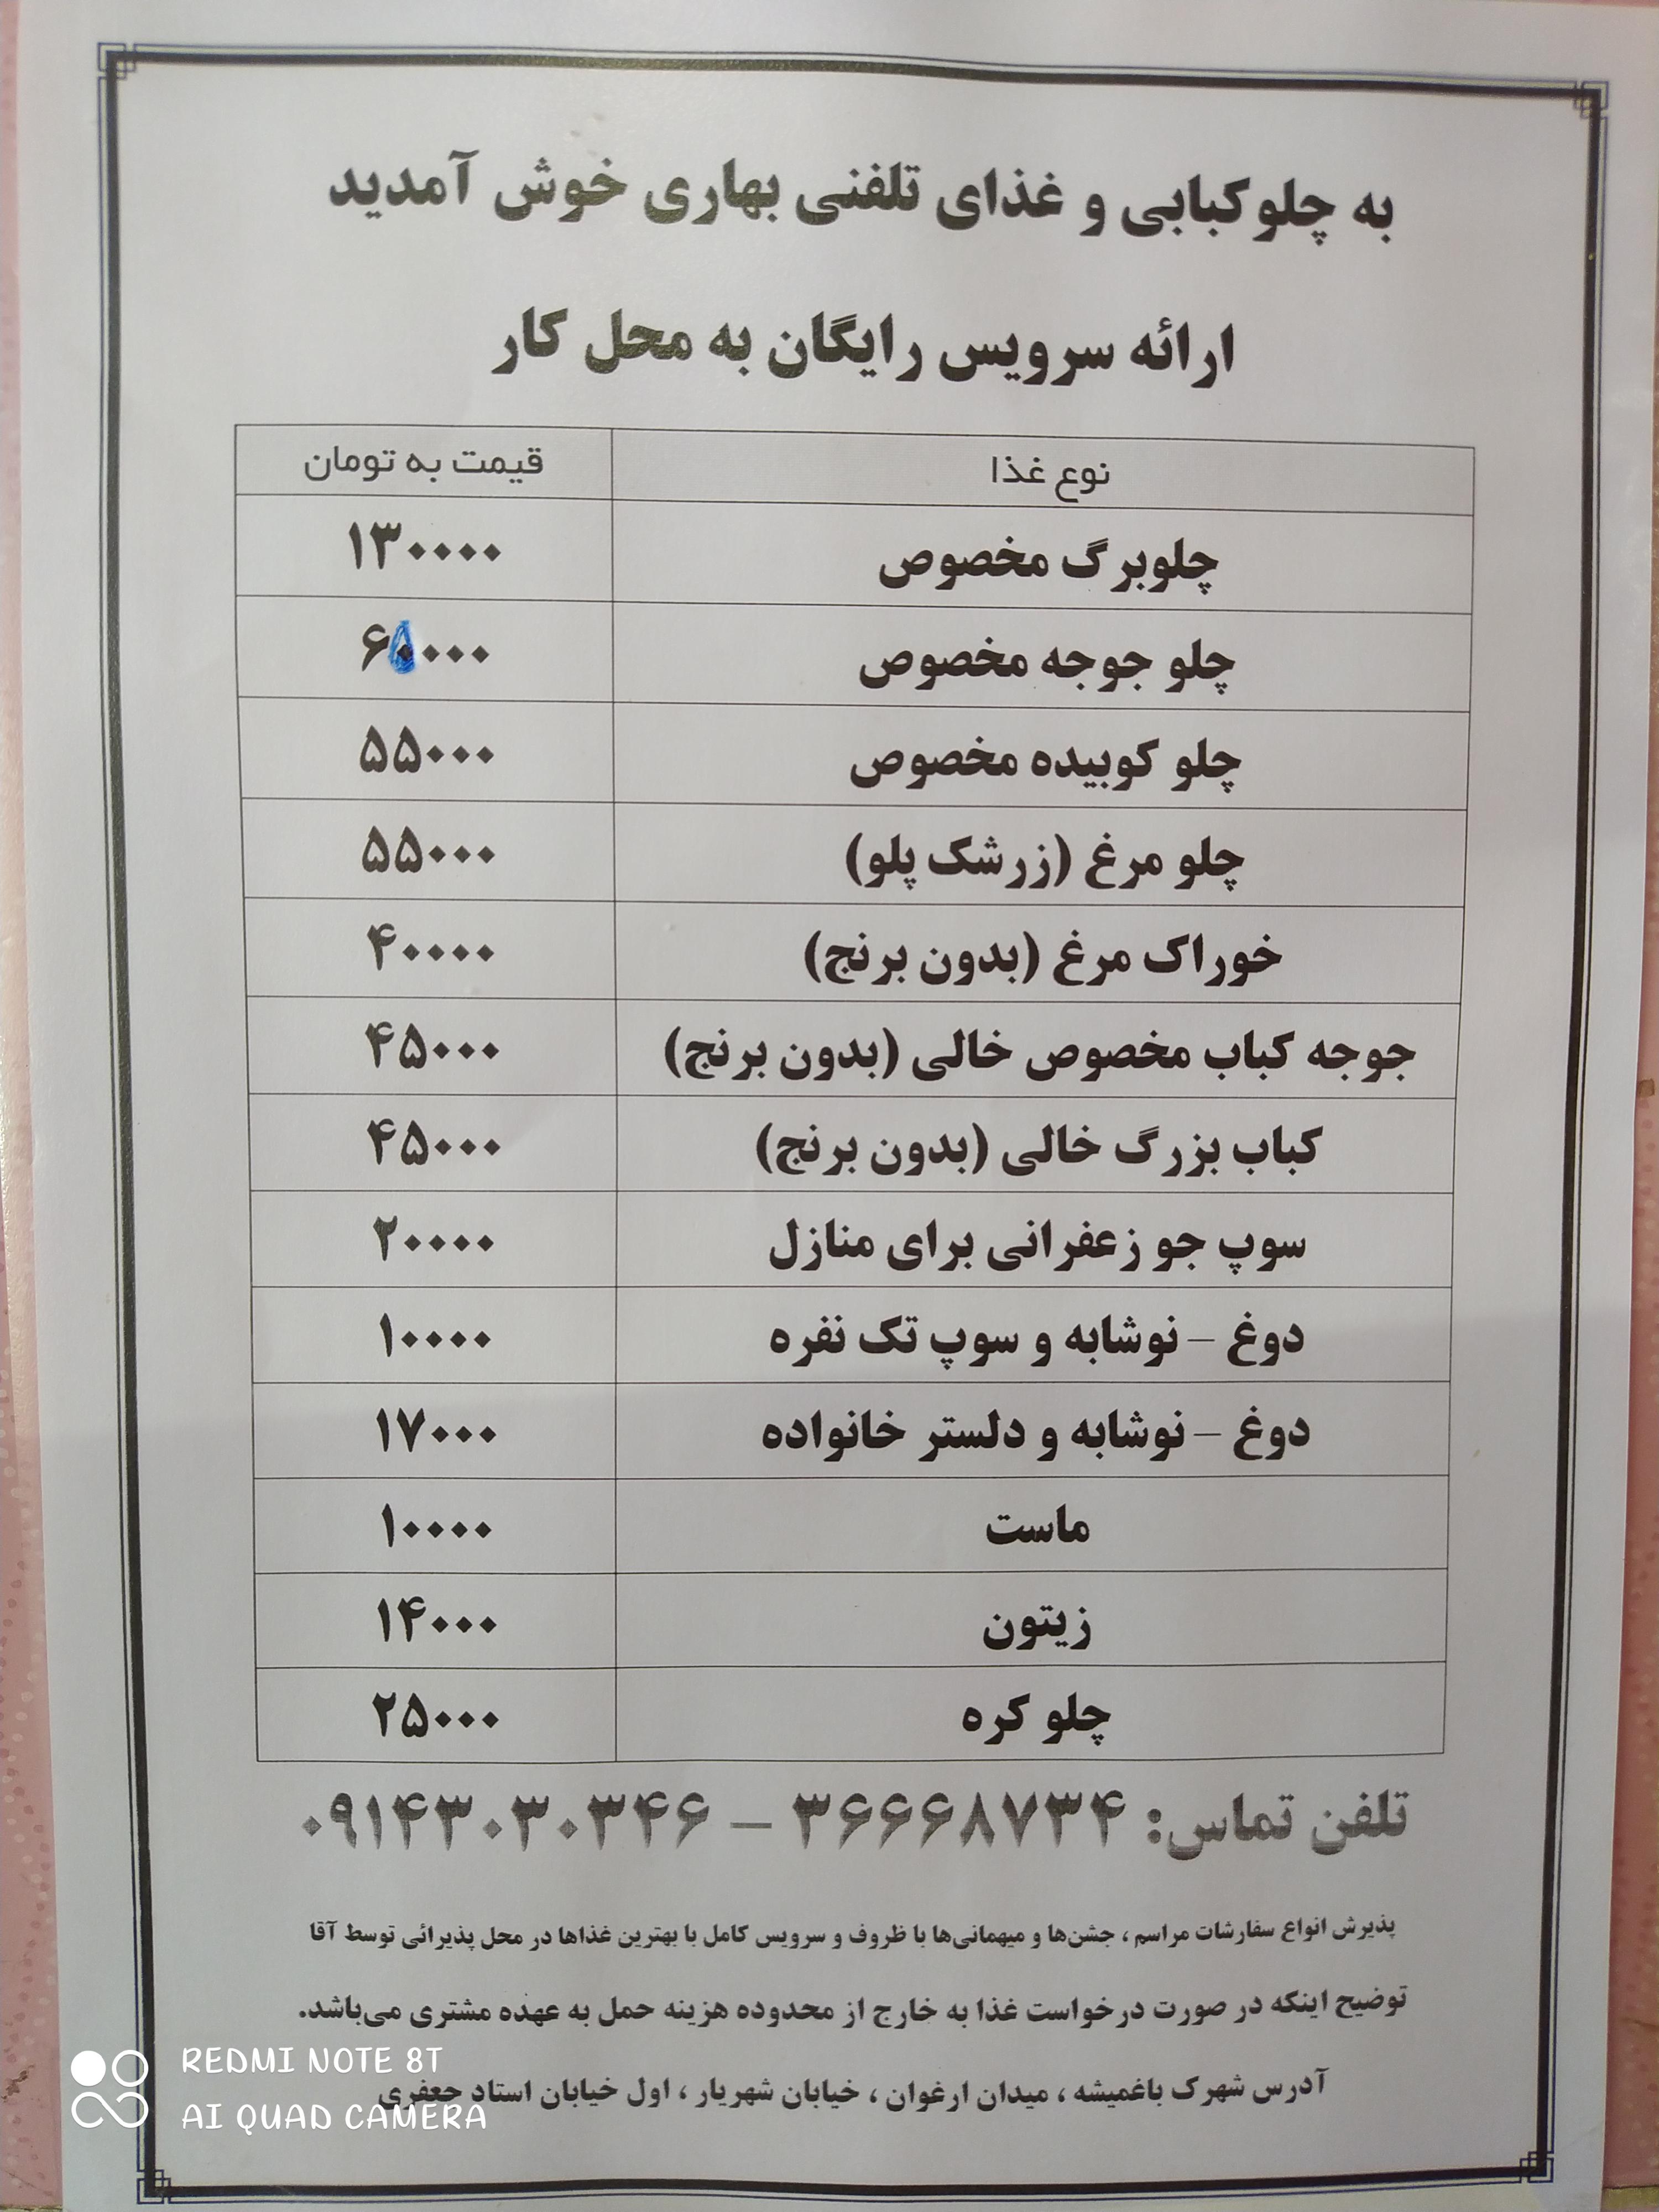 به چلوکبابی و غذای تلفنی بهاری خوش آمدید
ارائه سرویس رایگان به محل کار
نوع غذا قیمت به تومان
چلوبرگ مخصوص ۱۳۰۰۰۰
چلو جوجه مخصوص ۶۵۰۰۰
چلو کوبیده مخصوص ۵۵۰۰۰
چلو مرغ (زرشک پلو) ۵۵۰۰۰
خوراک مرغ (بدون برنج) ۴۰۰۰۰
جوجه کباب مخصوص خالی (بدون برنج) ۴۵۰۰۰
کباب بزرگ خالی (بدون برنج) ۴۵۰۰۰
سوپ جو زعفرانی برای منازل ۲۰۰۰۰
دوغ – نوشابه و سوپ تک نفره ۱۰۰۰۰
دوغ – نوشابه و دلستر خانواده ۱۷۰۰۰
ماست ۱۰۰۰۰
زیتون ۱۴۰۰۰
چلو کره ۲۵۰۰۰
تلفن تماس: ۳۶۶۶۸۷۳۴ – ۰۹۱۴۳۰۳۰۳۴۶
پذیرش انواع سفارشات مراسم ، جشن‌ها و میهمانی‌ها با ظروف و سرویس کامل با بهترین غذاها در محل پذیرائی توسط آقا
توضیح اینکه در صورت درخواست غذا به خارج از محدوده هزینه حمل به عهده مشتری می‌باشد.
آدرس شهرک باغمیشه ، میدان ارغوان ، خیابان شهریار ، اول خیابان استاد جعفری
REDMI NOTE 8T
AI QUAD CAMERA